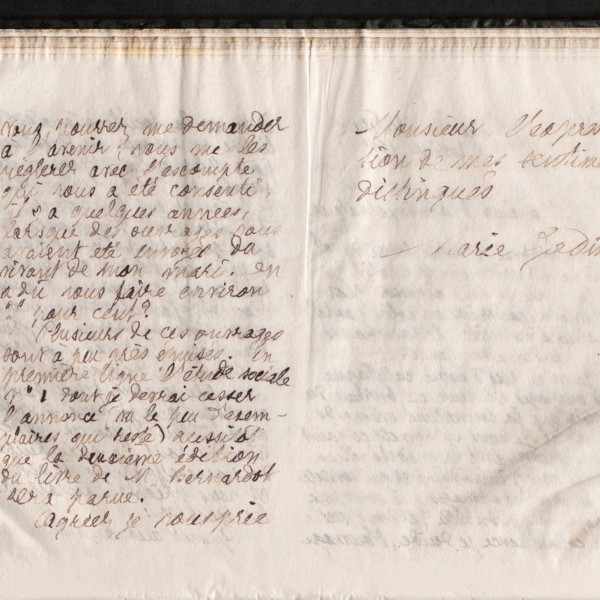 vous pourrez me demander
à l'avenir, vous me les
règlerez avec l'escompte
qui vous a été consenti
il y a quelques années,
lorsque des ouvrages vous
avaient été envoyés du
vivant de mon mari. On
a dû vous faire environ
pour cent?
Plusieurs de ces ouvrages
sont à peu près épuisés. En
première ligne l'étude sociale
n° 1 dont je devrai cesser
l'annonce vu le peu d'exem-
plaires qui reste) aussitôt
que la deuxième édition
du livre de M. Bernardot
sera parue.
Agréez je vous prie
Monsieur l'expres
sion de mes sentime
distingués
Marie Godin